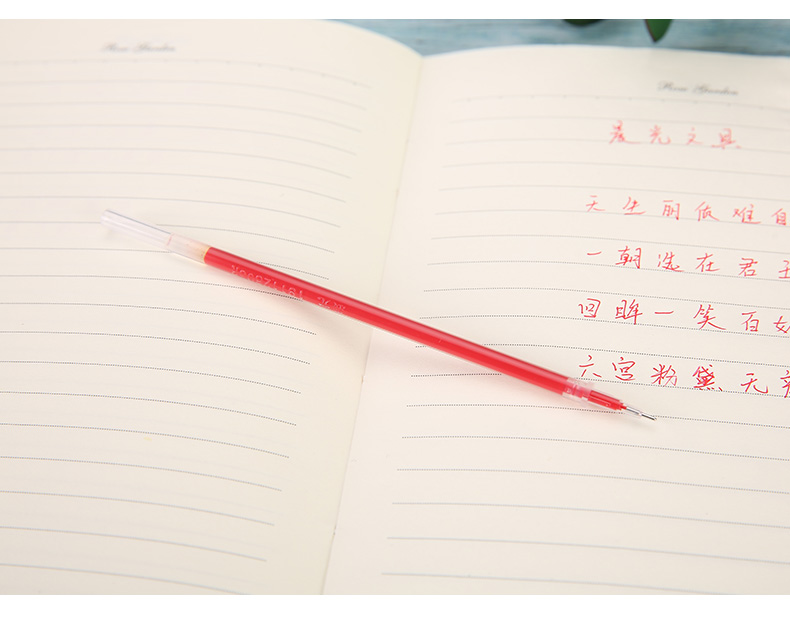 Rose Garden
Rose Garden
晨光文具
天生丽质难自
一朝选在君王
回眸一笑百
六宫粉黛无